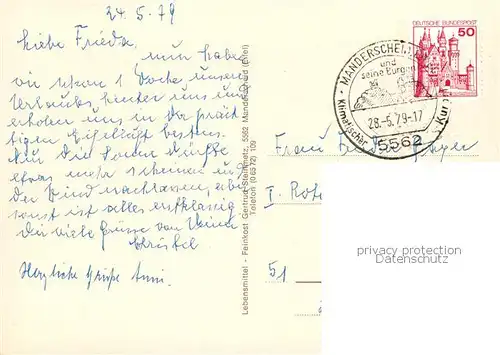 24.5.79
Liebe Frieda,
nun haben
wir schon 1 Woche unseres
Urlaubs hinter uns und
erholen uns in der präch
tigen Eifelluft bestens.
Nur die Sonne dürfte
etwas mehr scheinen und
der Wind nachlassen, aber
sonst ist alles erstklassig.
Dir viele Grüße von Deiner
Christel
Herzliche Grüße Anni.
Lebensmittel - Feinkost Gertrud Steinmetz, 5562 Manderscheid (Eifel)
Telefon (0 65 72) 109
DEUTSCHE BUNDESPOST
50
MANDERSCHEID
und
seine Burgen
28.-5.79-17
Klimatischer Kurort
5562
Frau
I. Rot
51
privacy protection
Datenschutz